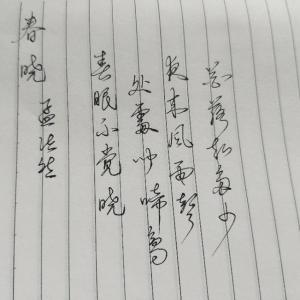 春晓 孟浩然
春眠不觉晓
处处闻啼鸟
夜来风雨声
花落知多少